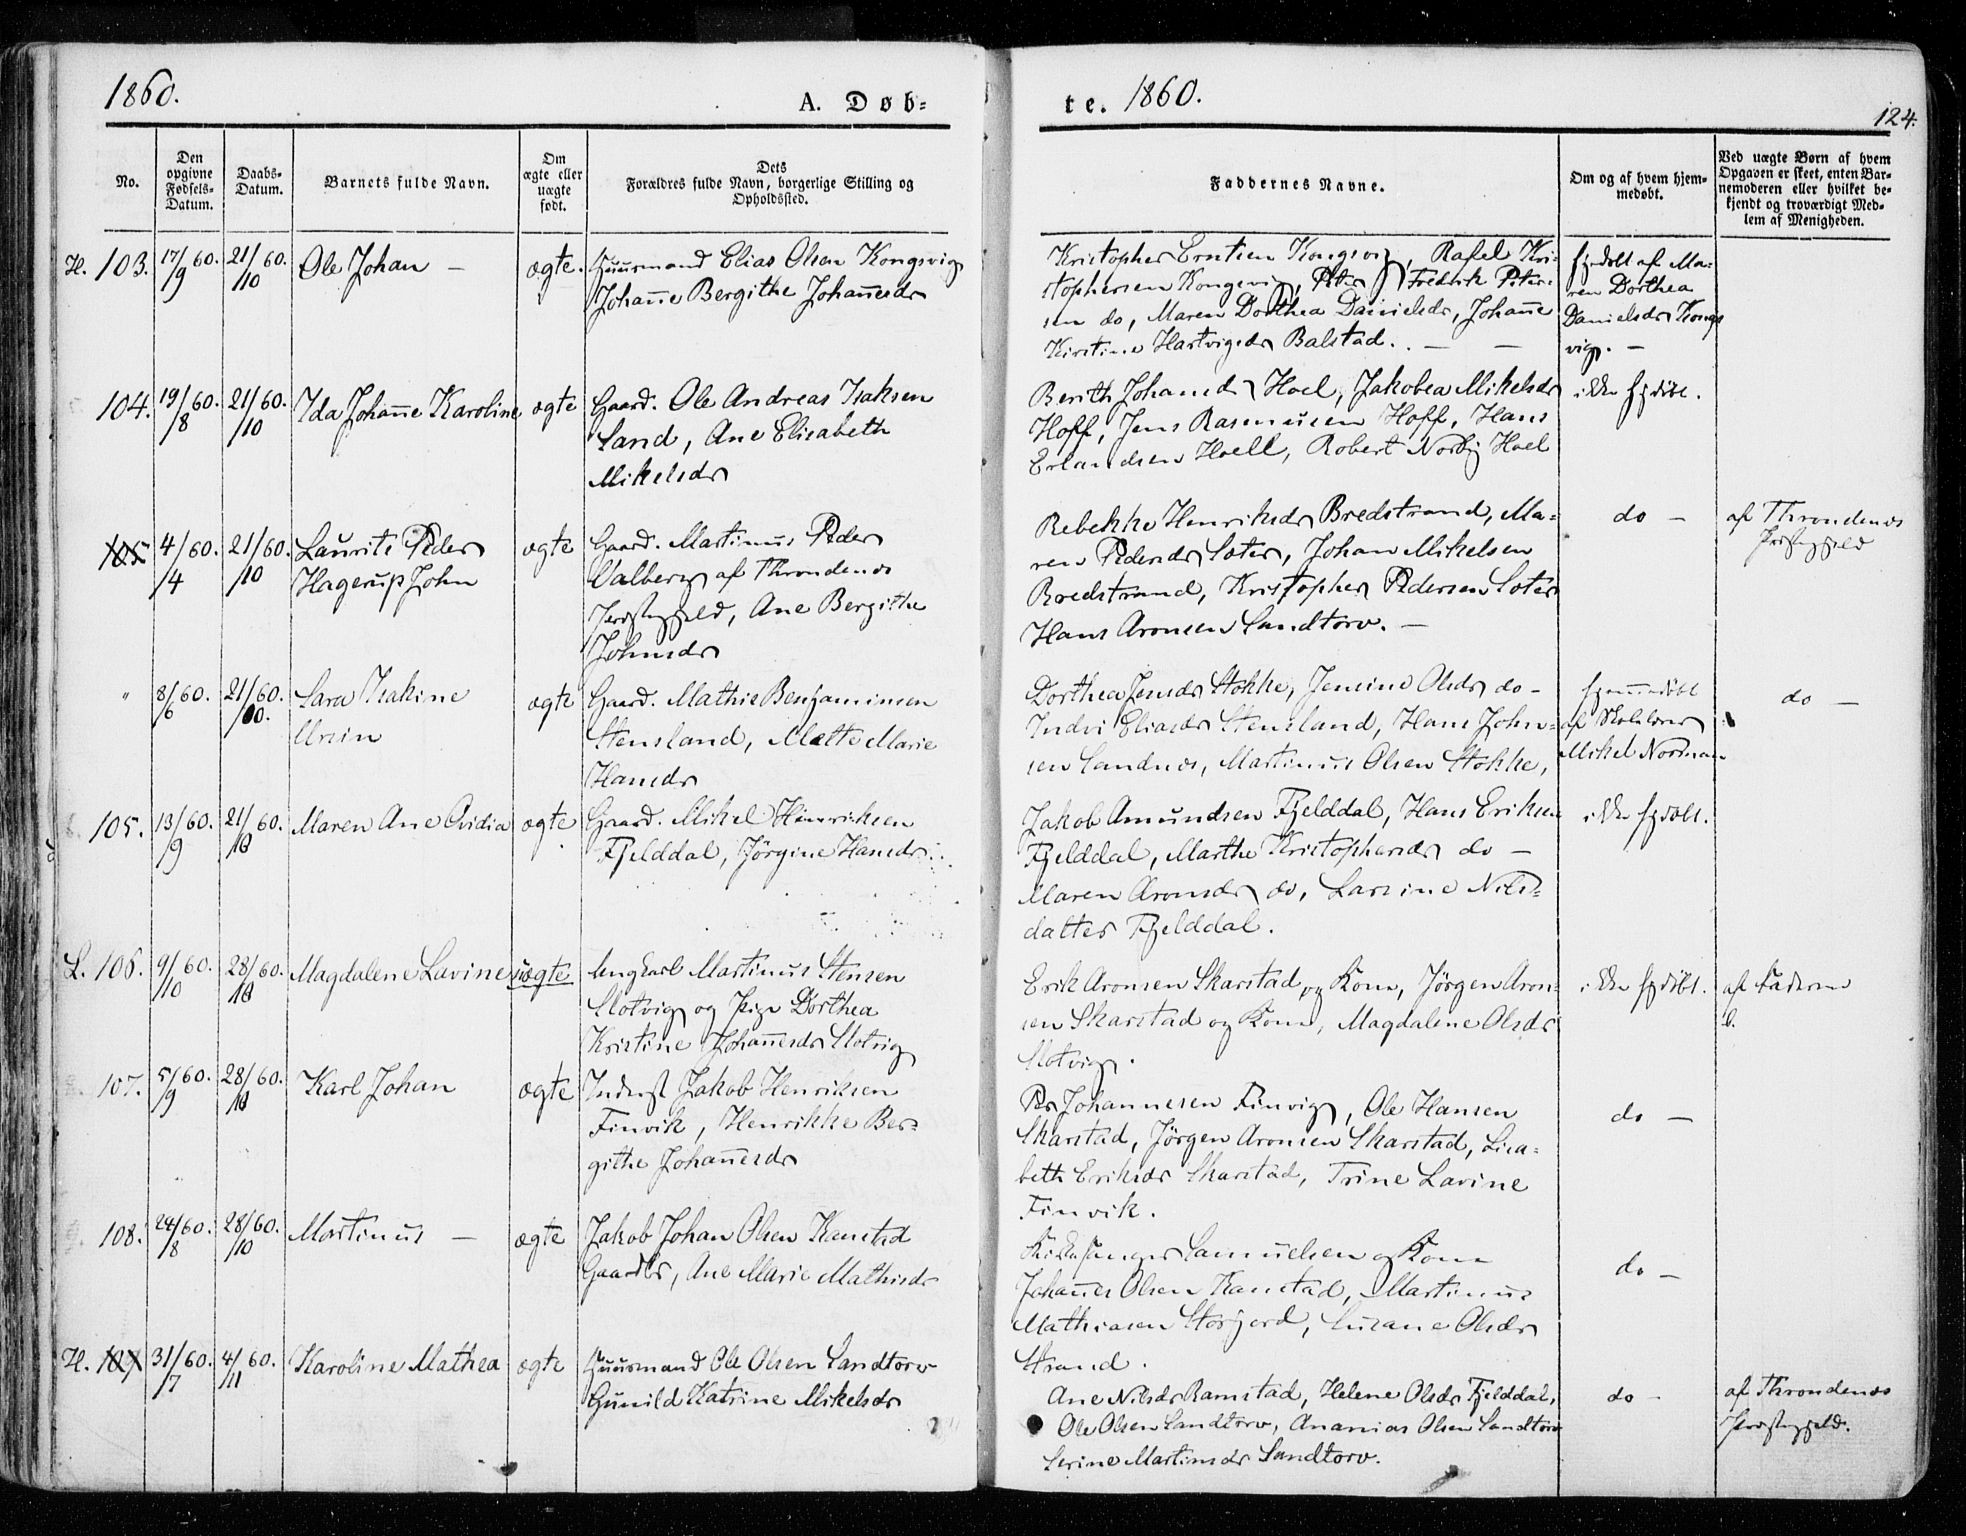 1860.
A. Døb=
te. 1860.
124.
No.
Den opgivne Fødsels-Datum.
Daabs-Datum.
Barnets fulde Navn.
Om ægte eller uægte født.
Dets Forældres fulde Navn, borgerlige Stilling og Opholdssted.
Faddernes Navne.
Om og af hvem hjem-medøbt.
Ved uægte Børn af hvem Opgaven er skeet, enten Bar-nemoderen eller hvilket be-kjendt og troværdigt Med-lem af Menigheden.
H. 103. 17/9 60. 21/10 60. Ole Johan — ægte. Huusmand Elias Olsen Kongsvig
Johanne Bergithe Johannesdr
Kristopher Erntsen Kongsvig, Rafel Kri-
stophersen Kongsvig, Peter Fredrik Peter-
sen do, Maren Dorthea Danielsdr, Johanne
Kirstine Hartvigsdr Balstad. — —
hjdøbt af Ma-
ren Dorthea
Danielsdr Kongs
vig. —
104. 19/8 60. 21/10 60. Ida Johanne Karoline ægte Gaard. Ole Andreas Isaksen
Sand, Ane Elisabeth
Mikelsdr
Berith Johansd Hoel, Jakobea Mikelsdr
Hoff, Jens Rasmussen Hoff, Hans
Erlandsen Hoell, Robert Norbÿ Hoel
ikke hjdøbt.
105 4/4 60. 21/10 60. Laurits Peder
Hagerup John
ægte Gaard. Martinus Peder
Valberg af Throndenæs
Præstegjeld, Ane Bergithe
Johnsdr
Rebekke Henriksdr Bredstrand, Ma-
ren Pedersdr Soter, Johan Mikelsen
Bredstrand, Kristopher Pedersen Soter
Hans Aronsen Sandtorv. —
do —
af Throndenæs
Præstegjeld
" 8/6 60. 21/10 60. Sara Isakine
Ursin
ægte Gaard. Mathis Benjaminsen
Stensland, Mette Marie
Hansdr
Dorthea Jensdr Stokke, Jensine Olsdr do —
Indvi Eliasdr Stensland, Hans John-
sen Sandnæs, Martinus Olsen Stokke,
hjemmedøbt
af Skolelærer
Mikel Norman
do —
105. 13/9 60. 21/10 60. Maren Ane Ovidia ægte Gaard. Mikel Hinriksen
Fjelddal, Jörgine Hansdr.
Jakob Amundsen Fjelddal, Hans Eriksen
Fjelddal, Marthe Kristophersdr do —
Maren Aronsdr do, Larsine Nils-
datter Fjelddal.
ikke hjdøbt.
L. 106. 9/10 60. 28/10 60. Magdalene Lavine uægte Ungkarl Martinus Stensen
Slotvig og Pige Dorthea
Kristine Johannesdr Slotvig
Erik Aronsen Skarstad og Kone, Jörgen Aron-
sen Skarstad og Kone, Magdalene Olsdr
Slotvig.
ikke hjdöbt.
af Faderen
107. 5/9 60. 28/10 60. Karl Johan ægte Inderst Jakob Henriksen
Finvik, Henrikke Ber-
githe Johannesdr
Per Johannesen Finvig, Ole Hansen
Skarstad, Jörgen Aronsen Skarstad, Lisa-
beth Eriksdr Skarstad, Trine Lavine
Finvik.
do —
108. 24/8 60. 28/10 60. Martinus — ægte Jakob Johan Olsen Kanstad
Gaardbr, Ane Marie Mathisdr
Kirkesanger Samuelsen og Kone
Johannes Olsen Kanstad, Martinus
Mathiasen Storjord, Susane Olsdr
Strand.
do —
H. 109 31/7 60. 4/11 60. Karoline Mathea ægte Huusmand Ole Olsen Sandtorv
Gunild Katrine Mikelsdr
Ane Nilsdr Ramstad, Helene Olsdr Fjelddal,
Ole Olsen Sandtorv, Ananias Olsen Sandtorv
Serine Martinsdr Sandtorv.
do —
af Throndenæs
Præstegjeld.